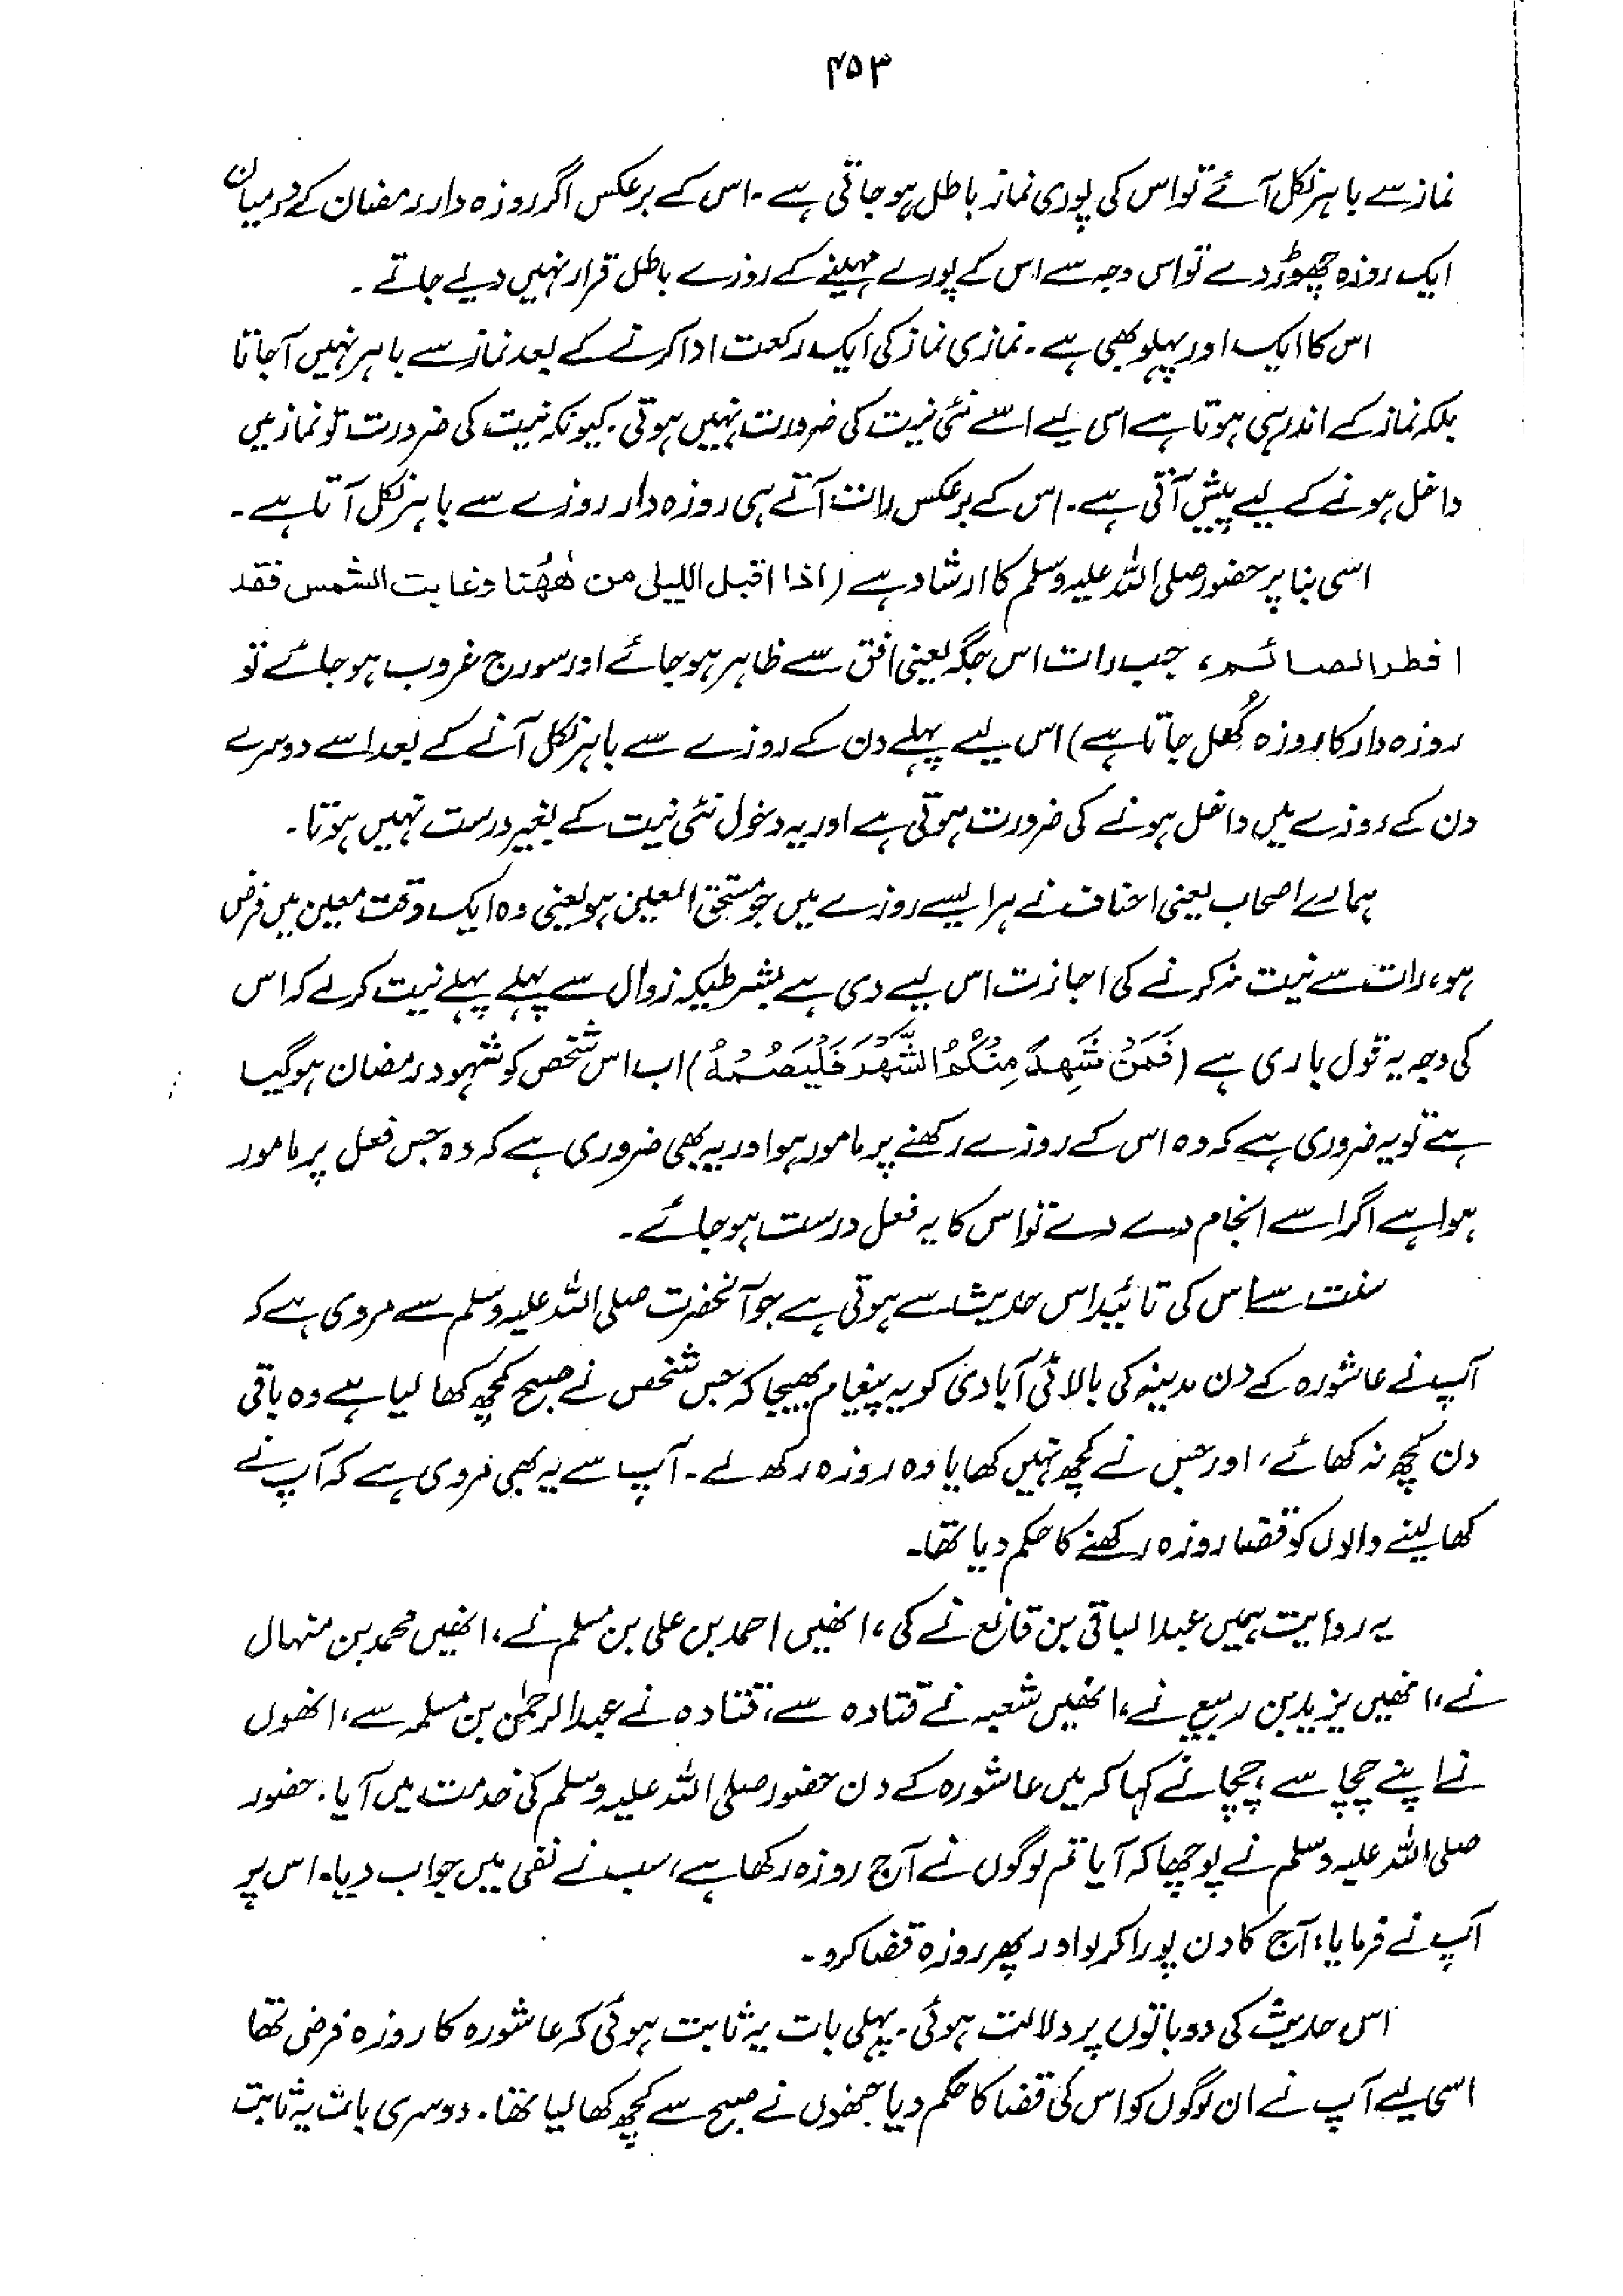 ۴۵۳
نماز سے باہر نکل آئے تو اس کی پوری نماز باطل ہو جاتی ہے۔ اس کے برعکس اگر روزہ دار رمضان کے درمیان
ایک روزہ چھوڑ دے تو اس وجہ سے اس کے پورے مہینے کے روزے باطل قرار نہیں دیے جاتے۔
اس کا ایک اور پہلو بھی ہے۔ نمازی نماز کی ایک رکعت ادا کرنے کے بعد نماز سے باہر نہیں آجاتا
بلکہ نماز کے اندر ہی ہوتا ہے اس لیے اسے نئی نیت کی ضرورت نہیں ہوتی۔ کیونکہ نیت کی ضرورت تو نماز میں
داخل ہونے کے لیے پیش آتی ہے۔ اس کے برعکس رات آتے ہی روزہ دار روزے سے باہر نکل آتا ہے۔
اسی بنا پر حضور صلی اللہ علیہ وسلم کا ارشاد ہے (اذا اقبل اللیل من ھٰھُنا وغابت الشمس فقد
افطر الصائم، جب رات اس جگہ یعنی افق سے ظاہر ہو جائے اور سورج غروب ہو جائے تو
روزہ دار کا روزہ کُھل جاتا ہے) اس لیے پہلے دن کے روزے سے باہر نکل آنے کے بعد اسے دوسرے
دن کے روزے میں داخل ہونے کی ضرورت ہوتی ہے اور یہ دخول نئی نیت کے بغیر درست نہیں ہوتا۔
ہمارے اصحاب یعنی احناف نے ہر ایسے روزے میں جو مستحق العین ہو یعنی وہ ایک وقت معین میں فرض
ہو، رات سے نیت نہ کرنے کی اجازت اس لیے دی ہے بشرطیکہ زوال سے پہلے پہلے نیت کر لے کہ اس
کی وجہ یہ قول باری ہے (فَمَنْ شَهِدَ مِنْكُمُ الشَّهْرَ فَلْيَصُمْهُ) اب اس شخص کو شہود رمضان ہو گیا
ہے تو یہ ضروری ہے کہ وہ اس کے روزے رکھنے پر مامور ہو اور یہ بھی ضروری ہے کہ وہ جس فعل پر مامور
ہوا ہے اگر اسے انجام دے دے تو اس کا یہ فعل درست ہو جائے۔
سنت سے اس کی تائید اس حدیث سے ہوتی ہے جو آنحضرت صلی اللہ علیہ وسلم سے مروی ہے کہ
آپ نے عاشورہ کے دن مدینہ کی بالائی آبادی کو یہ پیغام بھیجا کہ جس شخص نے صبح کچھ کھا لیا ہے وہ باقی
دن کچھ نہ کھائے، اور جس نے کچھ نہیں کھایا وہ روزہ رکھ لے۔ آپ سے یہ بھی مروی ہے کہ آپ نے
کھا لینے والوں کو قضا روزہ رکھنے کا حکم دیا تھا۔
یہ روایت ہمیں عبدالباقی بن قانع نے کی، انھیں احمد بن علی بن مسلم نے، انھیں محمد بن منہال
نے، انھیں یزید بن ربیع نے، انھیں شعبہ نے قتادہ سے، قتادہ نے عبدالرحمٰن بن مسلمہ سے، انھوں
نے اپنے چچا سے، چچا نے کہا کہ میں عاشورہ کے دن حضور صلی اللہ علیہ وسلم کی خدمت میں آیا۔ حضور
صلی اللہ علیہ وسلم نے پوچھا کہ آیا تم لوگوں نے آج روزہ رکھا ہے، سب نے نفی میں جواب دیا۔ اس پر
آپ نے فرمایا: آج کا دن پورا کر لو اور پھر روزہ قضا کرو۔
اس حدیث کی دو باتوں پر دلالت ہوئی۔ پہلی بات یہ ثابت ہوئی کہ عاشورہ کا روزہ فرض تھا
اسی لیے آپ نے ان لوگوں کو اس کی قضا کا حکم دیا جنھوں نے صبح سے کچھ کھا لیا تھا۔ دوسری بات یہ ثابت